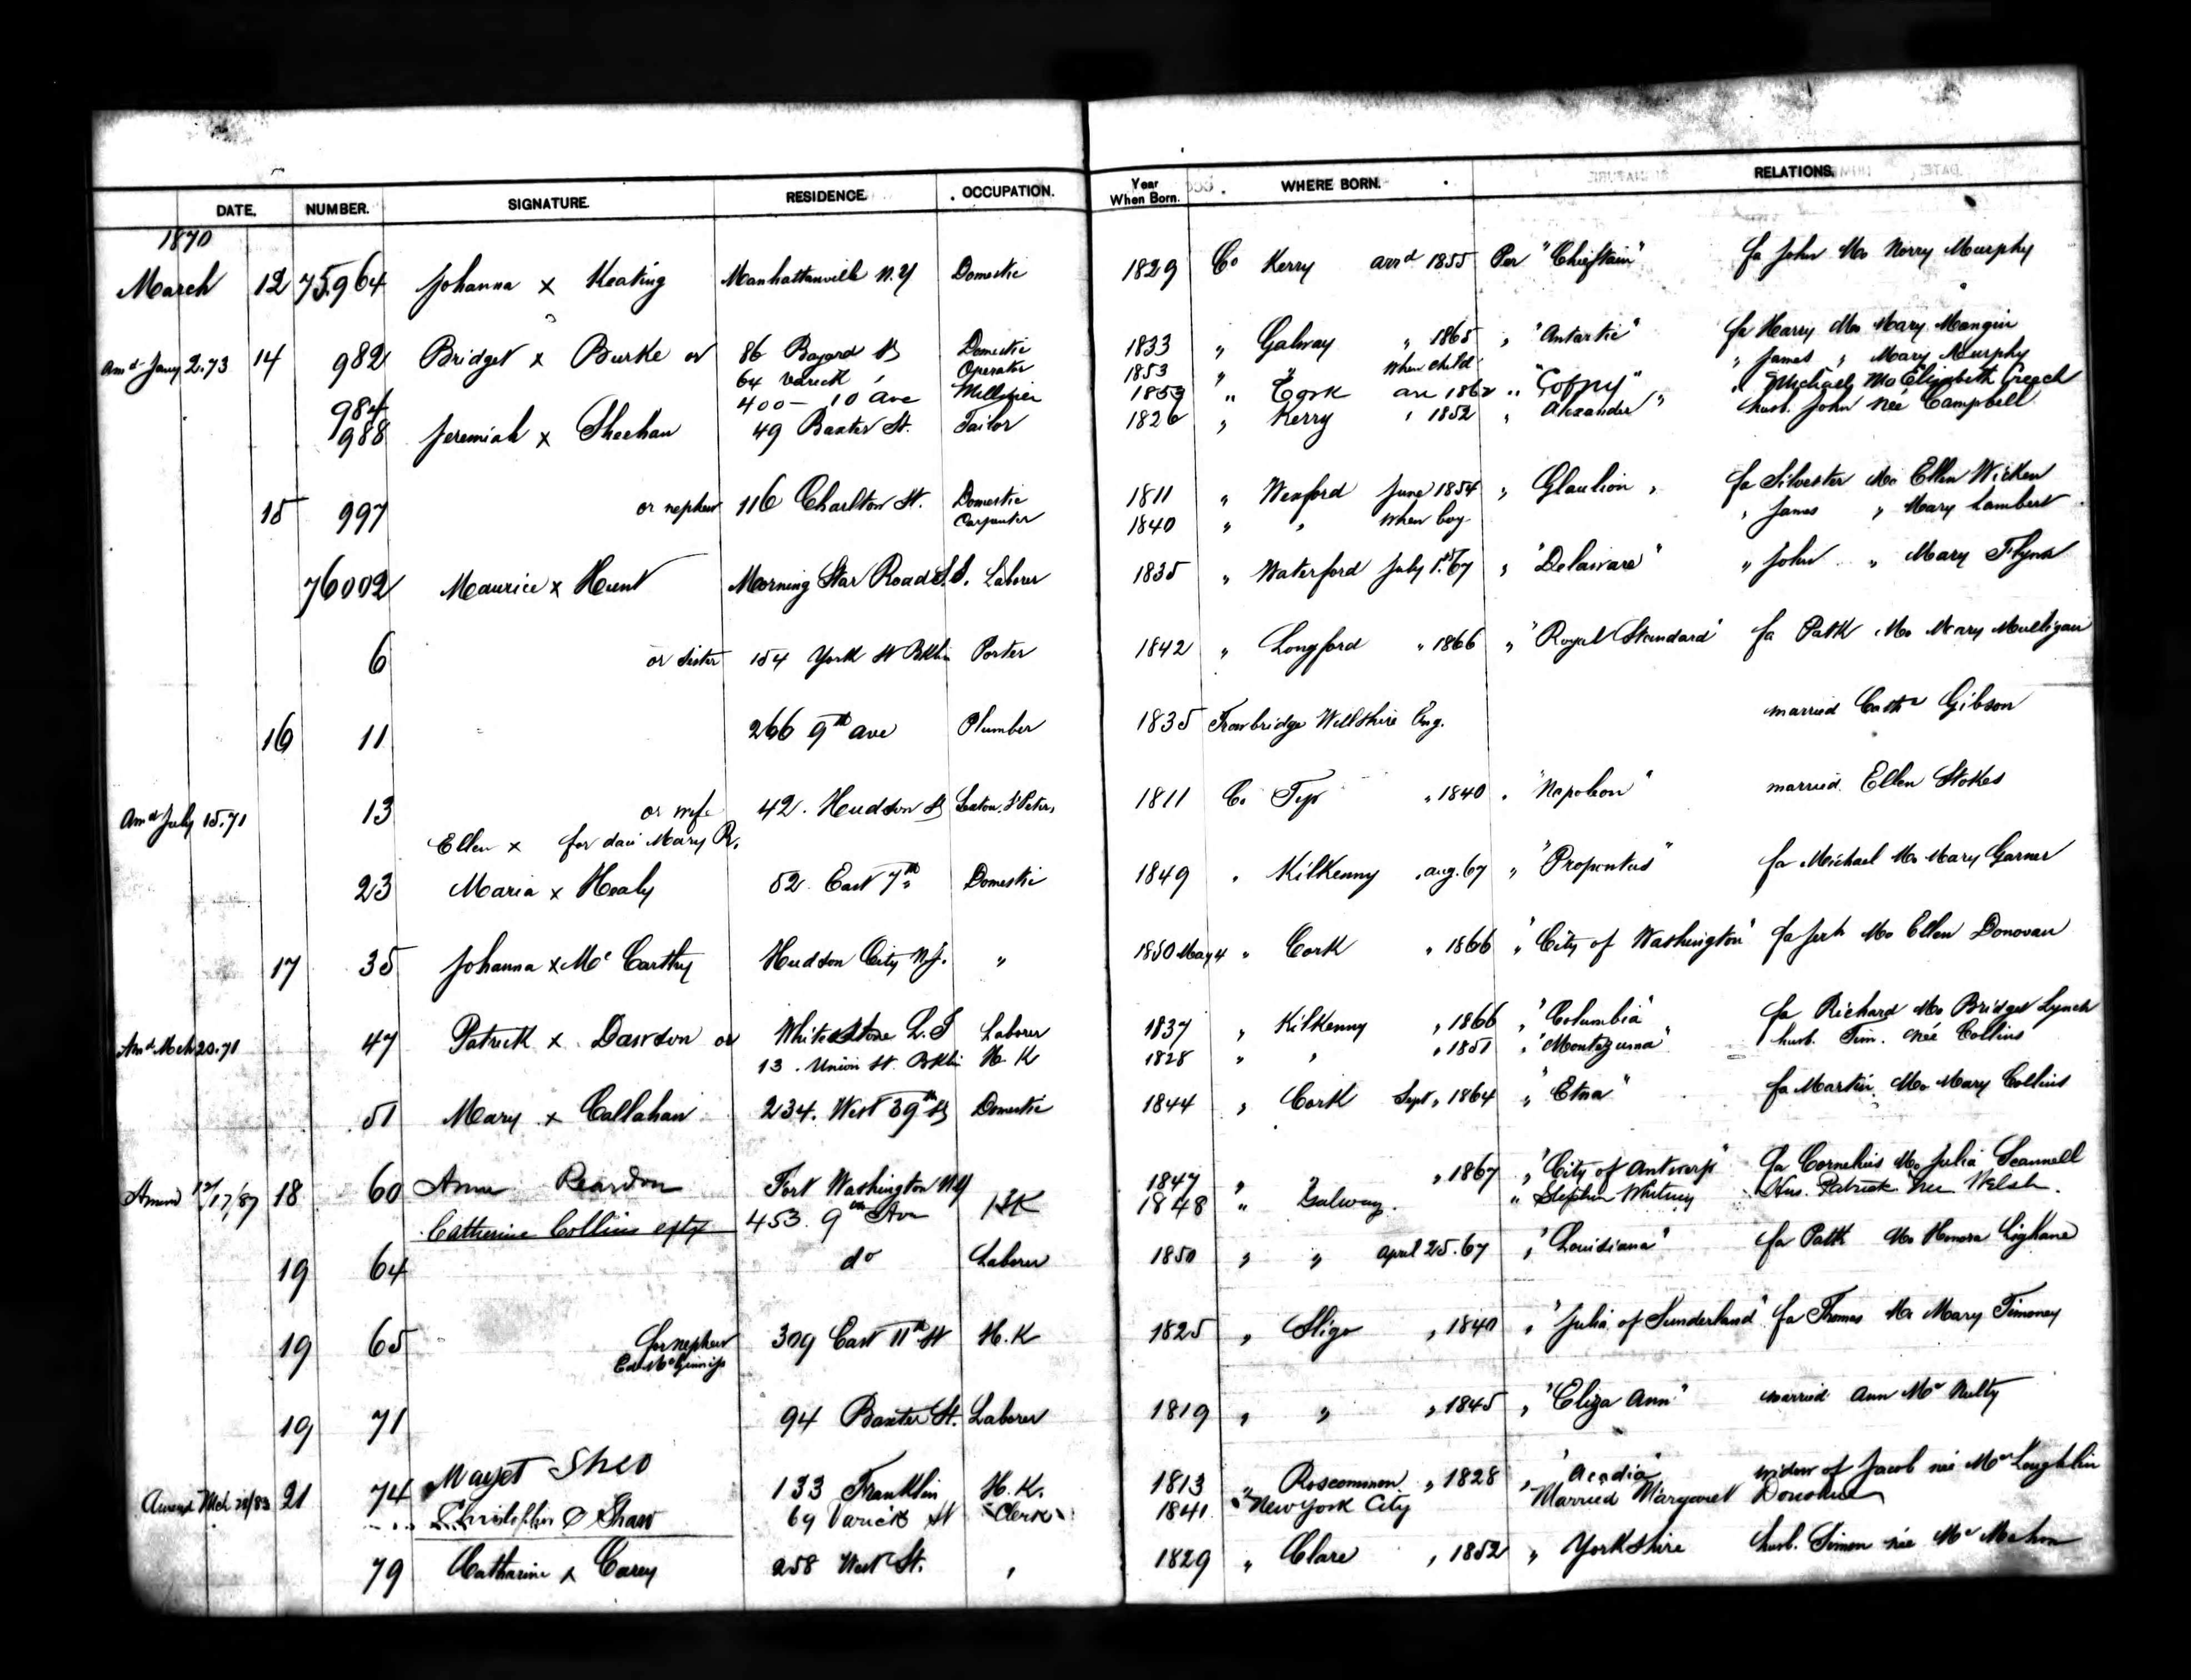 DATE. NUMBER. SIGNATURE. RESIDENCE. OCCUPATION. Year When Born. WHERE BORN. RELATIONS.
1870
March 12 75.964 Johanna x Keating Manhattanville N.Y Domestic 1829 Co Kerry arrd 1855 Per "Chieftain" fa John Mo Norry Murphy
Amd Jany 2.73 14 982 Bridget x Burke or 86 Bayard St Domestic 1833 " Galway " 1865 " "Antartic" fa Harry Mo Mary Mangin
64 Varick " Operator 1853 " " When child " James " Mary Murphy
984 400 - 10 Ave 1853 " Cork arr 1862 " " Michael Mo Elizabeth Creech
988 Jeremiah x Sheehan 49 Baxter St. Tailor 1826 " Kerry " 1852 " Alexander " husb. John née Campbell
15 997 or nephew 116 Charlton St. Domestic 1811 " Wexford June 1854 " Glaulion " fa Silvester Mo Ellen Wicken
Carpenter 1840 " " When boy " James " Mary Lambert
76002 Maurice x Hunt Morning Star Road L.I. Laborer 1835 " Waterford July 1st 67 " "Delaware" " John " Mary Flynn
6 or Sister 154 York St Bklin Porter 1842 " Longford " 1866 " "Royal Standard" fa Patk Mo Mary Mulligan
16 11 266 9th ave Plumber 1835 Trowbridge Willshire Eng. married Cathe Gibson
Amd July 15.71 13 or wife 42. Hudson St Sexton St Peters 1811 Co Tip " 1840 " "Napoleon" married Ellen Stokes
Ellen x for dau Mary R.
23 Maria x Healy 52. East 7th Domestic 1849 " Kilkenny " aug. 67 " "Propontus" fa Michael Mo Mary Garner
17 35 Johanna x Mc Carthy Hudson City N.J. " 1850 May 4 " Cork " 1866 " "City of Washington" fa Jerh Mo Ellen Donovan
Amd Mch 20.71 47 Patrick x Dawson or Whitestone L.I Laborer 1837 " Kilkenny " 1866 " "Columbia" fa Richard Mo Bridget Lynch
13. Union St. Bklin H. K 1828 " " " 1851 " "Montezuma" husb. Tim. née Collins
51 Mary x Callahan 234. West 39th St Domestic 1844 " Cork Sept " 1864 " "Etna" fa Martin Mo Mary Collins
Amend 12/17/87 18 60 Anne Reardon Fort Washington N.Y 1847 " " " 1867 " "City of Antwerp" fa Cornelius Mo Julia Scannell
Catherine Collins 453. 9th Ave HK 1848 " Galway. " Stephen Whitney Hus. Patrick nee Welsh.
19 64 do Laborer 1850 " " April 25. 67 " "Louisiana" fa Patk Mo Honora Lighane
19 65 for nephew 309 East 11th St H. K 1825 " Sligo " 1840 " "Julia of Sunderland" fa Thomas Mo Mary Timoney
Ed. McGinniss
19 71 94 Baxter St. Laborer 1819 " " " 1845 " "Eliza Ann" married Ann Mc Nulty
Amend Mch 28/83 21 74 Margt Sheo 133 Franklin H. K. 1813 " Roscommon " 1828 " "Acadia" widow of Jacob née Mc Loughlin
Christopher Shaw 69 Varick St Clerk 1841 New York City Married Margaret Donohue
79 Catharine x Carey 258 West St. " 1829 " Clare " 1852 " Yorkshire husb. Simon née Mc Mahon